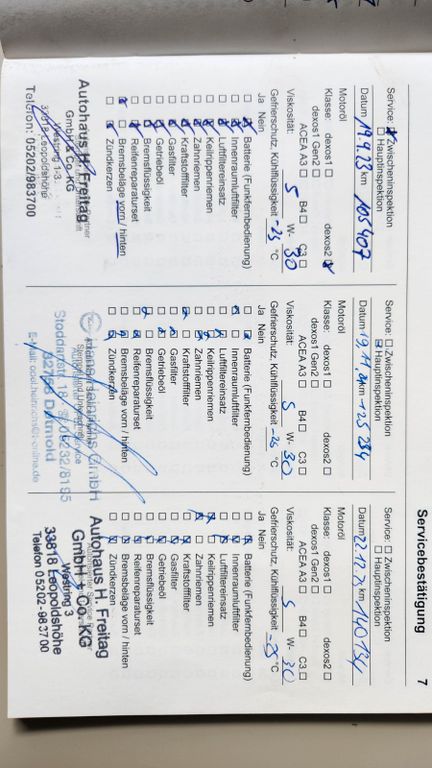 Servicebestätigung 7
Service: ☒ Zwischeninspektion
☐ Hauptinspektion
Datum 19.9.23 km 105 407
Motoröl
Klasse: dexos1 ☐ dexos2 ☒
dexos1 Gen2 ☐
ACEA A3 ☐ B4 ☐ C3 ☐
Viskosität: 5 W- 30
Gefrierschutz, Kühlflüssigkeit -25 °C
Ja Nein
Batterie (Funkfernbedienung)
Innenraumluftfilter
Luftfiltereinsatz
Keilrippenriemen
Zahnriemen
Kraftstofffilter
Gasfilter
Getriebeöl
Bremsflüssigkeit
Reifenreparaturset
Bremsbeläge vorn / hinten
Zündkerzen
Autohaus H. Freitag
GmbH & Co. KG
Westring 1-3
33818 Leopoldshöhe
Telefon: 05202/983700
Service: ☐ Zwischeninspektion
☒ Hauptinspektion
Datum 19.11.24 km 125 234
Motoröl
Klasse: dexos1 ☐ dexos2 ☐
dexos1 Gen2 ☐
ACEA A3 ☐ B4 ☐ C3 ☐
Viskosität: 5 W- 30
Gefrierschutz, Kühlflüssigkeit °C
Ja Nein
Batterie (Funkfernbedienung)
Innenraumluftfilter
Luftfiltereinsatz
Keilrippenriemen
Zahnriemen
Kraftstofffilter
Gasfilter
Getriebeöl
Bremsflüssigkeit
Reifenreparaturset
Bremsbeläge vorn / hinten
Zündkerzen
GmbH
32758 Detmold
Service: ☐ Zwischeninspektion
☐ Hauptinspektion
Datum 22.12. km 140
Motoröl
Klasse: dexos1 ☐ dexos2 ☐
dexos1 Gen2 ☐
ACEA A3 ☐ B4 ☐ C3 ☐
Viskosität: 5 W- 30
Gefrierschutz, Kühlflüssigkeit -25 °C
Ja Nein
Batterie (Funkfernbedienung)
Innenraumluftfilter
Luftfiltereinsatz
Keilrippenriemen
Zahnriemen
Kraftstofffilter
Gasfilter
Getriebeöl
Bremsflüssigkeit
Reifenreparaturset
Bremsbeläge vorn / hinten
Zündkerzen
Autohaus H. Freitag
GmbH + Co. KG
Westring 3
33818 Leopoldshöhe
Telefon 05202-983700